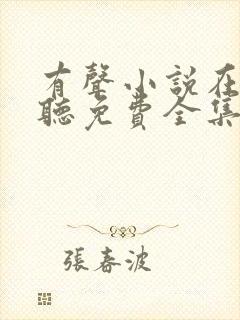 有聲小說在
聽免費全集
張春波